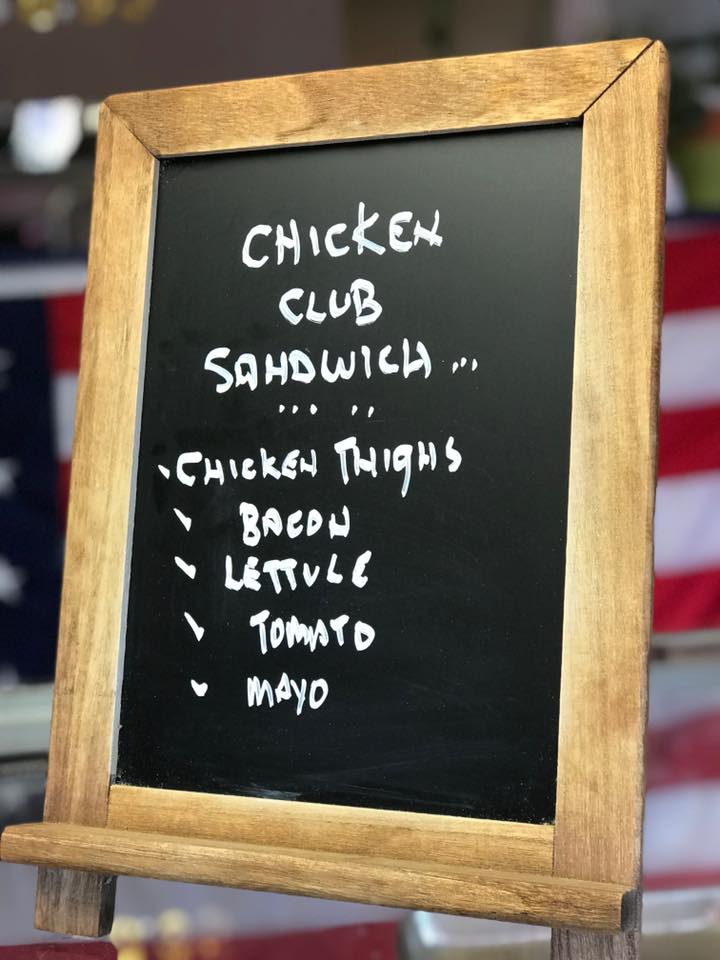 CHICKEN
CLUB
SANDWICH ...
... ..
CHICKEN THIGHS
BACON
LETTUCE
TOMATO
MAYO